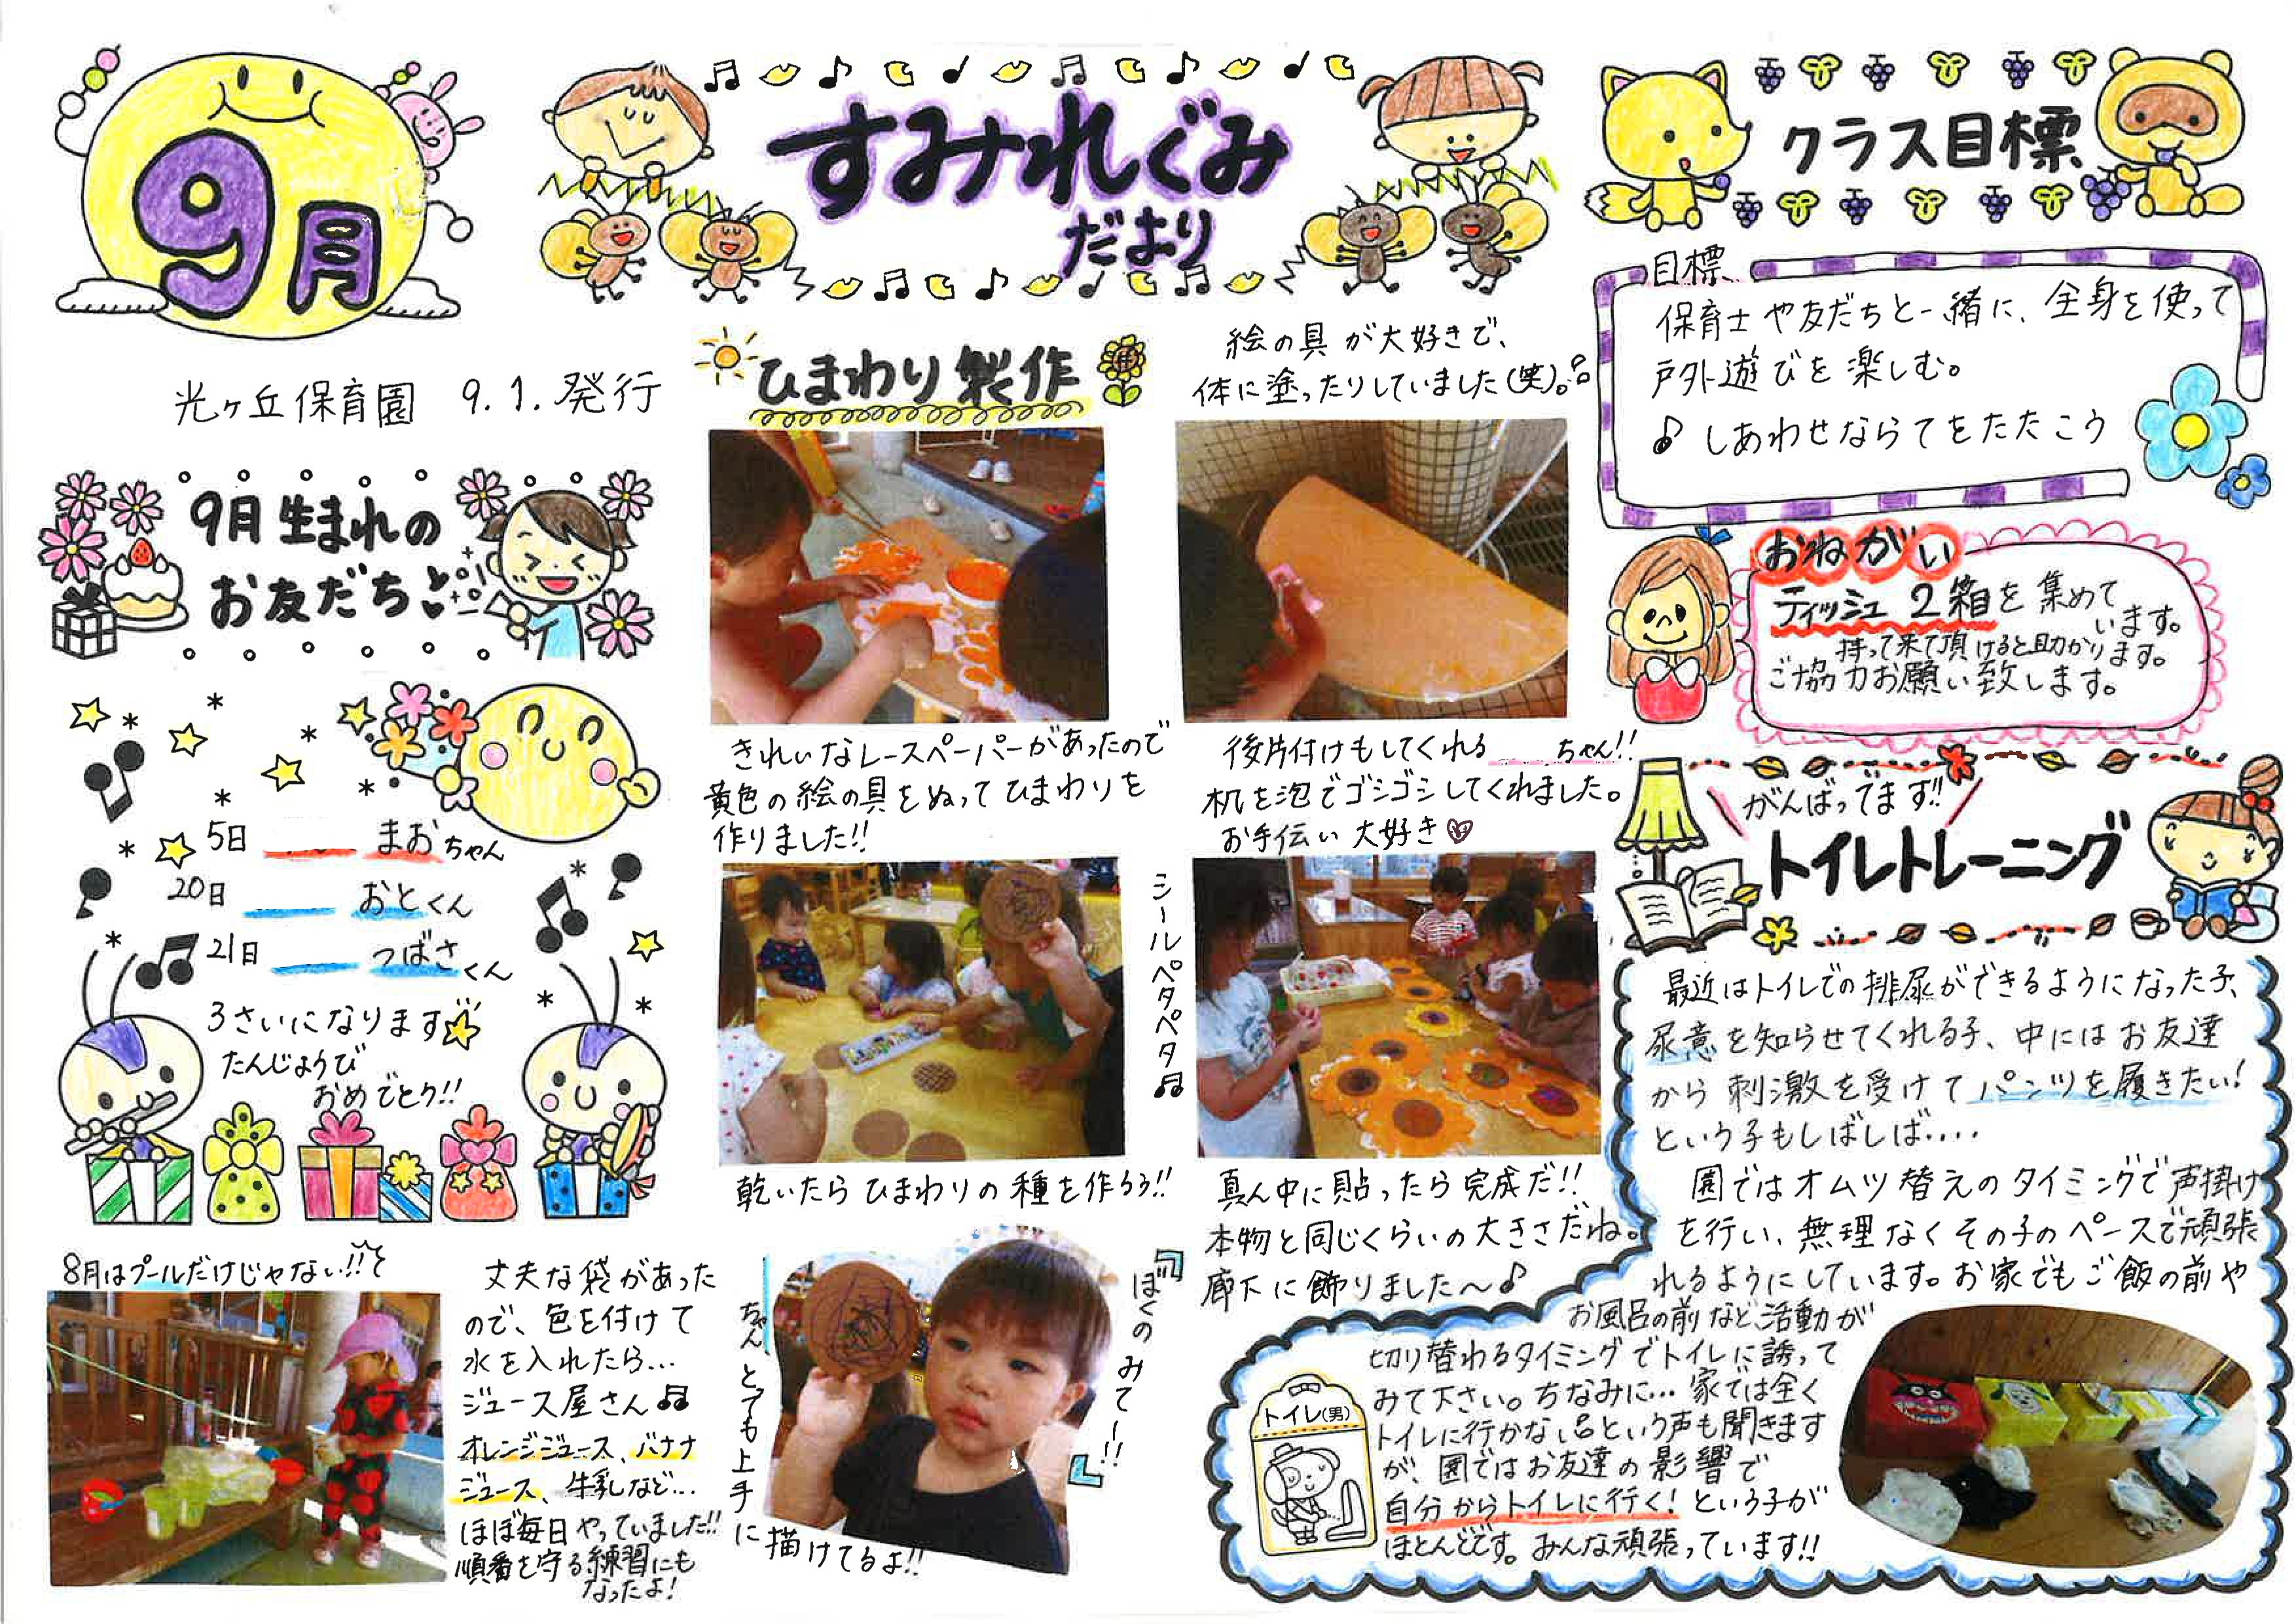 9月
すみれぐみ
だより
光ヶ丘保育園 9.1.発行
9月生まれの
お友だち
5日 まおちゃん
20日 おとくん
21日 つばさくん
3さいになります
たんじょうび
おめでとう!!
8月はプールだけじゃない!!
丈夫な袋があった
ので、色を付けて
水を入れたら…
ジュース屋さん♫
オレンジジュース、バナナ
ジュース、牛乳など…
ほぼ毎日やっていました!!
順番を守る練習にも
なったよ!
ひまわり製作
きれいなレースペーパーがあったので
黄色の絵の具をぬってひまわりを
作りました!!
絵の具が大好きで、
体に塗ったりしていました(笑)。
後片付けもしてくれる ちゃん!!
机を泡でゴシゴシしてくれました。
お手伝い大好き♡
シールペタペタ♫
乾いたらひまわりの種を作ろう!!
真ん中に貼ったら完成だ!!
本物と同じくらいの大きさだね。
廊下に飾りました～♪
『ぼくのみてー!!』
ちゃんとても上手
に描けてるよ!!
クラス目標
目標
保育士や友だちと一緒に、全身を使って
戸外遊びを楽しむ。
♪ しあわせならてをたたこう
おねがい
ティッシュ2箱を集めて
います。
持って来て頂けると助かります。
ご協力お願い致します。
がんばってます!!
トイレトレーニング
最近はトイレでの排尿ができるようになった子、
尿意を知らせてくれる子、中にはお友達
から刺激を受けてパンツを履きたい!
という子もしばしば....
園ではオムツ替えのタイミングで声掛け
を行い、無理なくその子のペースで頑張
れるようにしています。お家でもご飯の前や
お風呂の前など活動が
切り替わるタイミングでトイレに誘って
みて下さい。ちなみに…家では全く
トイレに行かない。という声も聞きます
が、園ではお友達の影響で
自分からトイレに行く!という子が
ほとんどです。みんな頑張っています!!
トイレ(男)